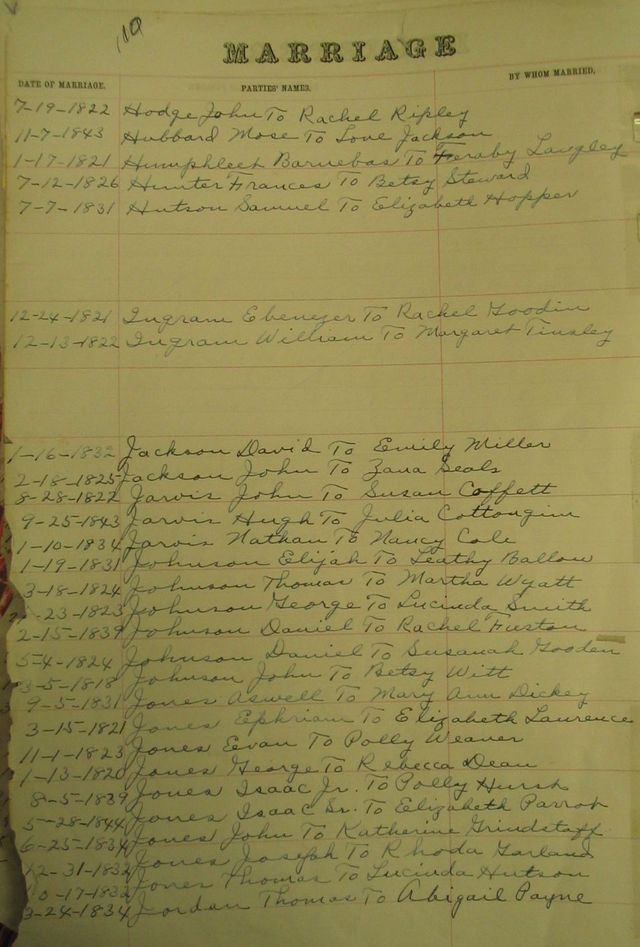 110
MARRIAGE
DATE OF MARRIAGE. PARTIES' NAMES. BY WHOM MARRIED.
7-19-1822 Hodge John To Rachel Ripley
11-7-1843 Hubbard Mose To Love Jackson
1-17-1821 Humphleet Barnebas To Feraby Langley
7-12-1826 Hunter Frances To Betsy Steward
7-7-1831 Hutson Samuel To Elizabeth Hopper
12-24-1821 Ingram Ebenezer To Rachel Goodin
12-13-1822 Ingram William To Margaret Tinsley
1-16-1832 Jackson David To Emily Miller
2-18-1825 Jackson John To Zana Seals
8-28-1822 Jarvis John To Susan Coffett
9-25-1843 Jarvis Hugh To Julia Cottongim
1-10-1834 Jarvis Nathan To Nancy Cole
1-19-1831 Johnson Elijah To Leathy Ballow
3-18-1824 Johnson Thomas To Martha Wyatt
23-1823 Johnson George To Lucinda Smith
2-15-1839 Johnson Daniel To Rachel Fuston
5-4-1824 Johnson Daniel To Susanah Gooden
3-5-1818 Johnson John To Betsy Witt
9-5-1831 Jones Aswell To Mary Ann Dickey
3-15-1821 Jones Ephriam To Elizabeth Laurence
11-1-1823 Jones Evan To Polly Weaver
1-13-1820 Jones George To Rebecca Dean
8-5-1839 Jones Isaac Jr. To Polly Hursh
5-28-1844 Jones Isaac Sr. To Elizabeth Parrot
6-25-1834 Jones John To Katherine Grindstaff
12-31-1832 Jones Joseph To Rhoda Garland
10-17-1832 Jones Thomas To Lucinda Hutson
3-24-1834 Jordan Thomas To Abigail Payne